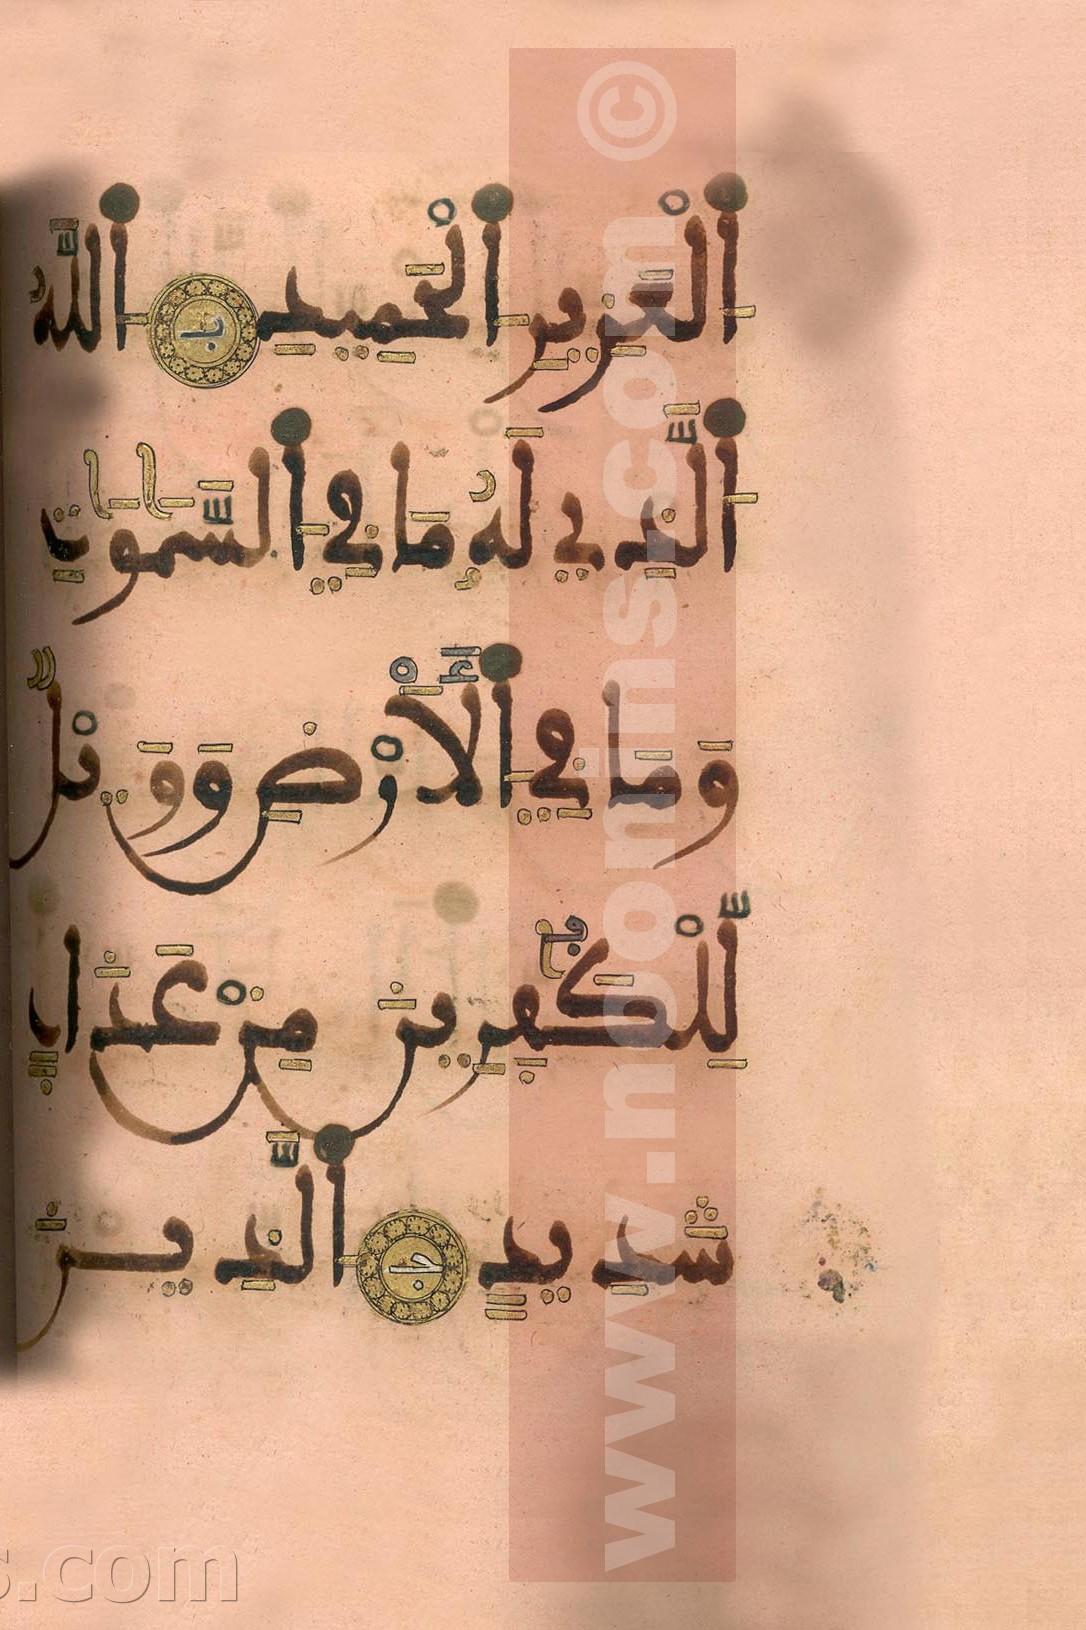 اَ۬لْعَزِيزِ اِ۬لْحَمِيدِ ب اِ۬للَّهُ
اُ۬لَّذِي لَهُۥ مَا فِي اِ۬لسَّمَٰوَٰتِ
وَمَا فِي اِ۬لْأَرْضِ وَوَيْلٌ
لِّلْكٰفِرِينَ مِنْ عَذَابٖ
شَدِيدٍ ج اِ۬لَّذِينَ
© www.nbominsr.com
s.com